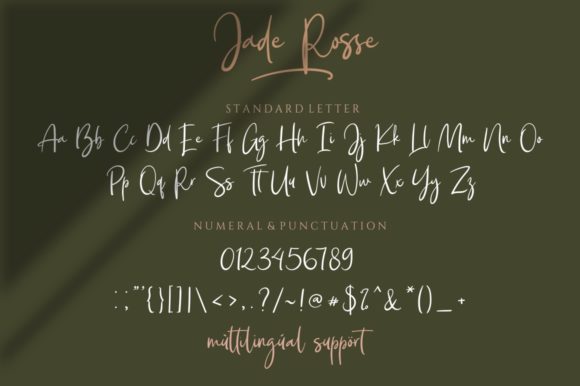 Jade Rosse
STANDARD LETTER
Aa Bb Cc Dd Ee Ff Gg Hh Ii Jj Kk Ll Mm Nn Oo
Pp Qq Rr Ss Tt Uu Vv Ww Xx Yy Zz
NUMERAL & PUNCTUATION
0123456789
: ; " ' { } [ ] | \ < > , . ? / ~ ! @ # $ % ^ & * ( ) _ +
múltilingúal súppórt